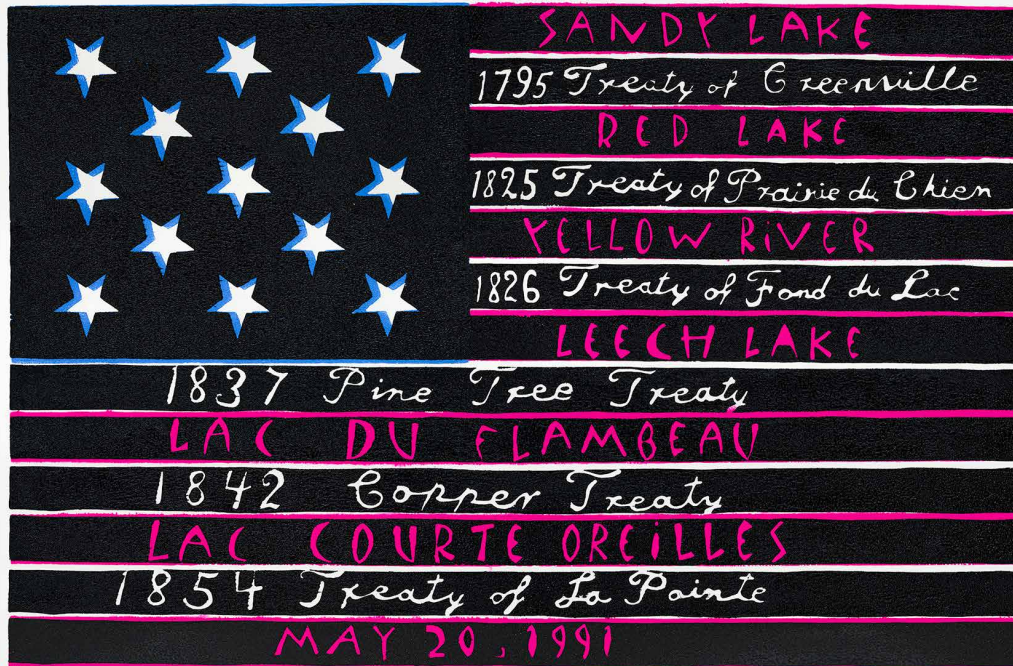 SANDY LAKE
1795 Treaty of Greenville
RED LAKE
1825 Treaty of Prairie du Chien
YELLOW RiVER
1826 Treaty of Fond du Lac
LEECH LAKE
1837 Pine Tree Treaty
LAC DU FLAMBEAU
1842 Copper Treaty
LAC COURTE OREiLLES
1854 Treaty of La Pointe
MAY 20, 1991